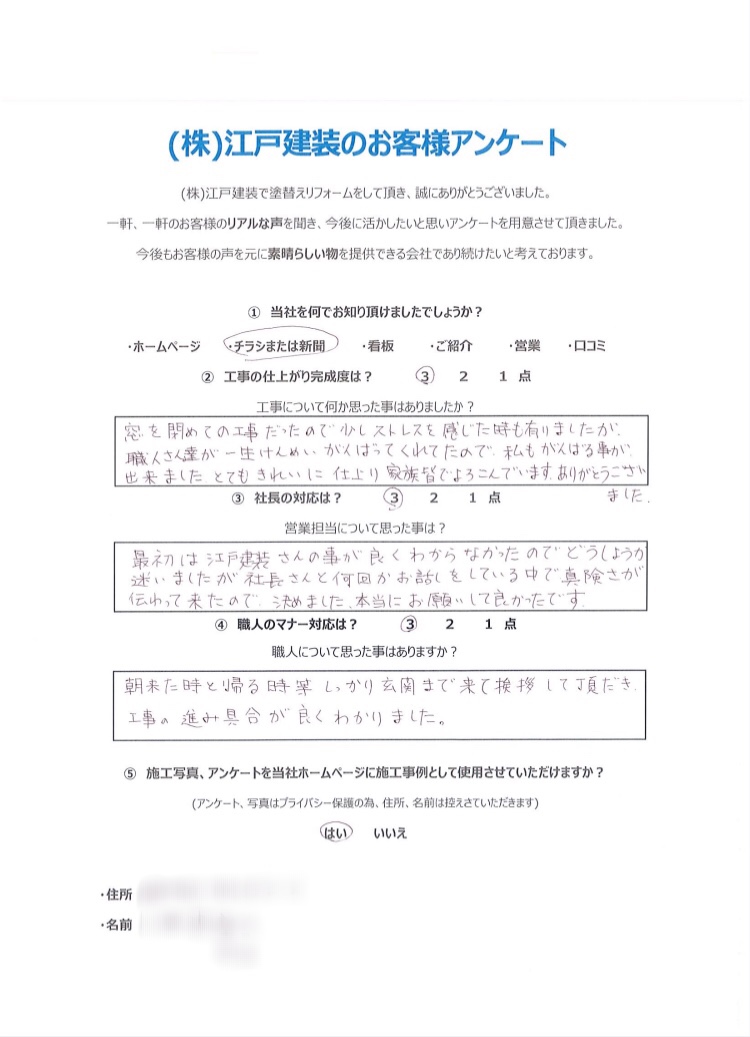 (株)江戸建装のお客様アンケート
(株)江戸建装で塗替えリフォームをして頂き、誠にありがとうございました。
一軒、一軒のお客様のリアルな声を聞き、今後に活かしたいと思いアンケートを用意させて頂きました。
今後もお客様の声を元に素晴らしい物を提供できる会社であり続けたいと考えております。
① 当社を何でお知り頂けましたでしょうか？
・ホームページ ・チラシまたは新聞 ・看板 ・ご紹介 ・営業 ・口コミ
② 工事の仕上がり完成度は？ 3 2 1 点
工事について何か思った事はありましたか？
窓を閉めての工事だったので少しストレスを感じた時も有りましたが、
職人さん達が一生けんめいがんばってくれてたので、私もがんばる事が、
出来ました とてもきれいに仕上り 家族皆でよろこんでいます。ありがとうござい
ました.
③ 社長の対応は？ 3 2 1 点
営業担当について思った事は？
最初は江戸建装さんの事が良くわからなかったのでどうしようか
迷いましたが社長さんと何回かお話しをしている中で真険さが
伝わって来たので、決めました、本当にお願いして良かったです
④ 職人のマナー対応は？ 3 2 1 点
職人について思った事はありますか？
朝来た時と帰る時 しっかり玄関まで来て挨拶して頂だき、
工事の進み具合が良くわかりました。
⑤ 施工写真、アンケートを当社ホームページに施工事例として使用させていただけますか？
(アンケート、写真はプライバシー保護の為、住所、名前は控えさていただきます)
はい いいえ
・住所
・名前